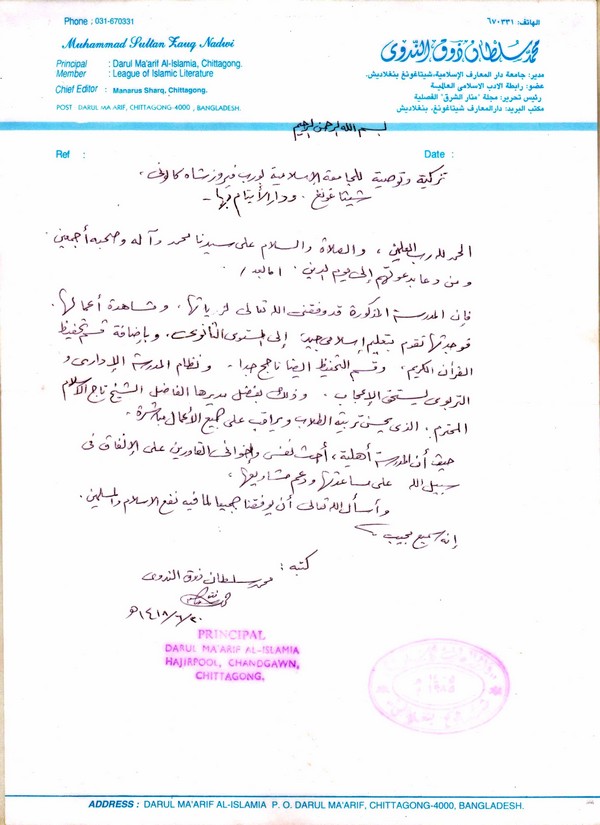 Phone : 031-670331
الهاتف: ٦٧٠٣٣١
Muhammad Sultan Zauq Nadwi
محمد سلطان ذوق الندوى
Principal : Darul Ma'arif Al-Islamia, Chittagong.
Member : League of Islamic Literature
Chief Editor : Manarus Sharq, Chittagong.
POST DARUL MA'ARIF, CHITTAGONG-4000 , BANGLADESH.
مدير: جامعة دار المعارف الإسلامية، شيتاغونغ بنغلاديش.
عضو: رابطة الادب الاسلامى العالمية
رئيس تحرير: مجلة "منار الشرق" الفصلية
مكتب البريد: دارالمعارف شيتاغونغ، بنغلاديش.
بسم الله الرحمن الرحيم
Ref :
Date :
تزكية وتوصية للجامعة الاسلامية لورب فيروز شاه كالونى،
شيتاغونغ. ودار الأيتام بها -
الحمد لله رب العلمين، والصلاة والسلام على سيدنا محمد وآله وصحبه أجمعين.
ومن دعا بدعوتهم إلى يوم الدين. أما بعد/
فإن المدرسة المذكورة قد وفقنى الله تعالى لزيارتها، ومشاهدة أعمالها.
فوجدتها تقوم بتعليم إسلامى جيد إلى المستوى الثانوى، وبإضافة قسم تحفيظ
القرآن الكريم، وقسم التحفيظ ايضا ناجح جدا - ونظام المدرسة الإدارى و
التربوى ليستحق الإعجاب. وذلك بفضل مديرها الفاضل الشيخ تاج الإسلام
المحترم. الذى يحسن تربية الطلاب ويراقب على جميع الأعمال مباشرة -
حيث أن المدرسة أهلية، أحث نفسى وإخوانى القادرين على الإنفاق فى
سبيل الله على مساعدتها ودعم مشاريعها،
وأسأل الله تعالى أن يوفقنا جميعا لما فيه نفع الاسلام والمسلمين.
إنه سميع مجيب
كتبه :
محمد سلطان ذوق الندوى
٢٠/٦/١٤١٨هـ
PRINCIPAL
DARUL MA'ARIF AL-ISLAMIA
HAJIRPOOL, CHANDGAWN,
CHITTAGONG.
ADDRESS : DARUL MA'ARIF AL-ISLAMIA P. O. DARUL MA'ARIF, CHITTAGONG-4000, BANGLADESH.